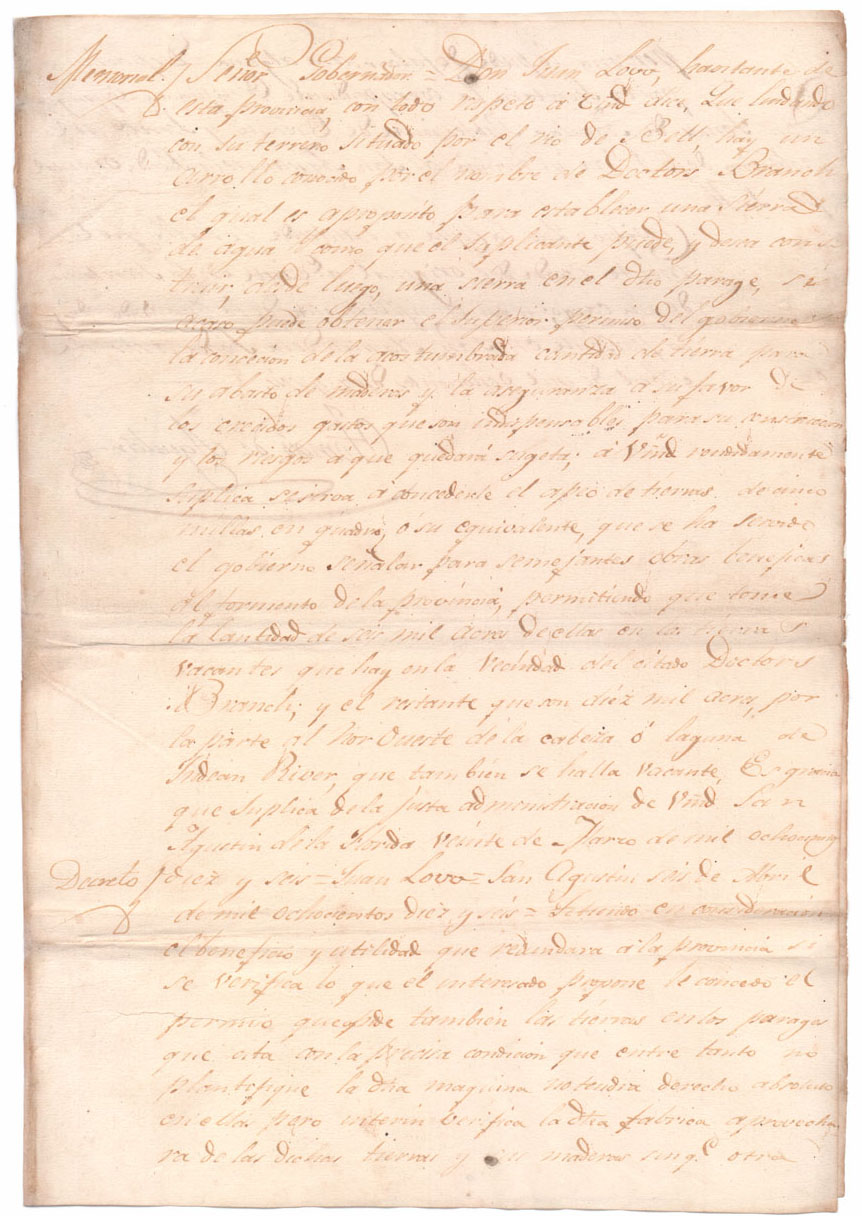 Memorial / Señor Gobernador = Don Juan Lovo, havitante de
esta provincia, con todo respeto á Vmd dice, Que lindando
con su terreno situado por el rio de Bell, hay un
arrollo conocido por el nombre de Doctors Branch
el qual es aproposito para establecer una sierra
de agua y como que el Suplicante puede, y desea cons
truir, desde luego, una sierra en el dho parage, si
acaso puede obtener el superior permiso del govierno
la concecion de la acostumbrada cantidad de tierra para
su abasto de maderas y la aseguranza á su favor de
los crecidos gastos que son indispensables para su construccion
y los riesgos a que quedará sugeta; á Vmd rendidamente
Suplica se sirva á concederle el de tierras de cinco
millas en quadro, ó su equivalente, que se ha servido
el gobierno señalar para semejantes obras beneficas
al formento de la provincia, permitiendo que tome
la Cantidad de seis mil acres de ellas en las tierras
vacantes que hay en la vecindad del citado Doctors
Branch; y el restante que son diez mil acres, por
la parte al Nor Oueste de la cabeza ó laguna de
Indean River, que tambien se halla vacante, Es gracia
que Suplica de la justa administracion de Vmd San
Agustin de la Florida veinte de Marzo de mil
Decreto / diez y seis = Juan Lovo = San Agustin seis de Abril
de mil ochocientos diez y seis = Teniendo en consideracion
el beneficio y utilidad que redundara á la provincia si
se verifica lo que el interesado propone le concedo el
permiso que pide tambien las tierras en los parages
que cita con la precisa condicion que entre tanto no
plantifique la dha maquina no tendra derecho absoluto
en ellas pero interin verifica la dha fabrica aprovecha
ra de las dichas tierras y sus maderas sin qe. otra